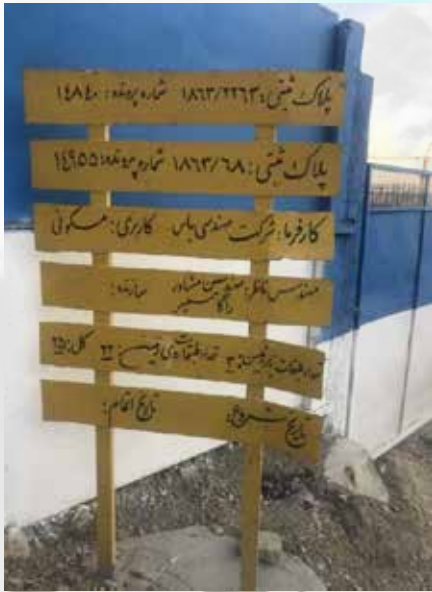 پلاک ثبتی: ۱۸۶۳/۲۲۶۳ شماره پرونده: ۱۴۸۴۰
پلاک ثبتی: ۱۸۶۳/۶۸ شماره پرونده: ۱۴۹۵۵
کارفرما: شرکت مهندسی پلس کاربری: مسکونی
مهندس ناظر: مهندسین مشاور سازنده:
تعداد طبقات زیرزمین: ۳ تعداد طبقات روی زمین: ۲۲ کل: ۲۵
تاریخ شروع: تاریخ اتمام: